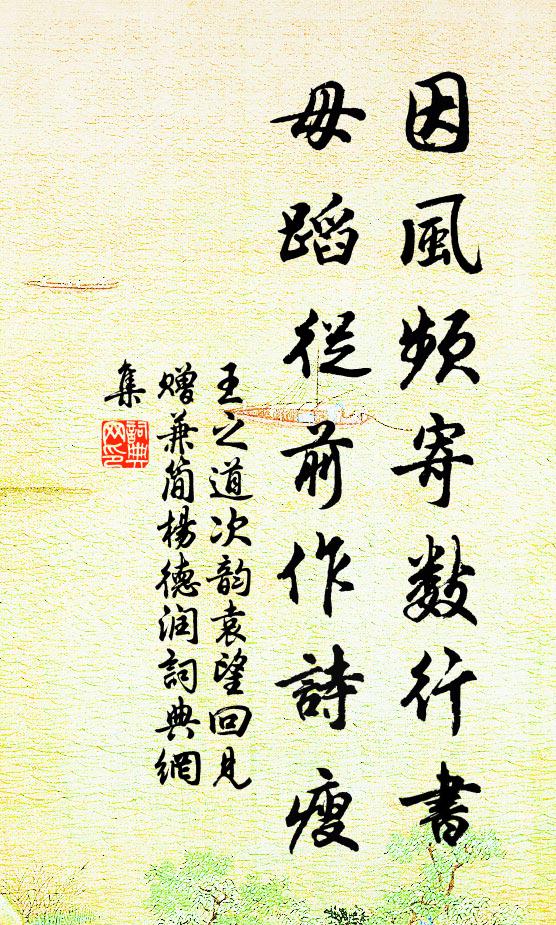 因風頻寄數行書
毋蹈從前作詩瘦
王之道次韵袁望回見
贈兼简楊德润詞典網
集
詞典
网印